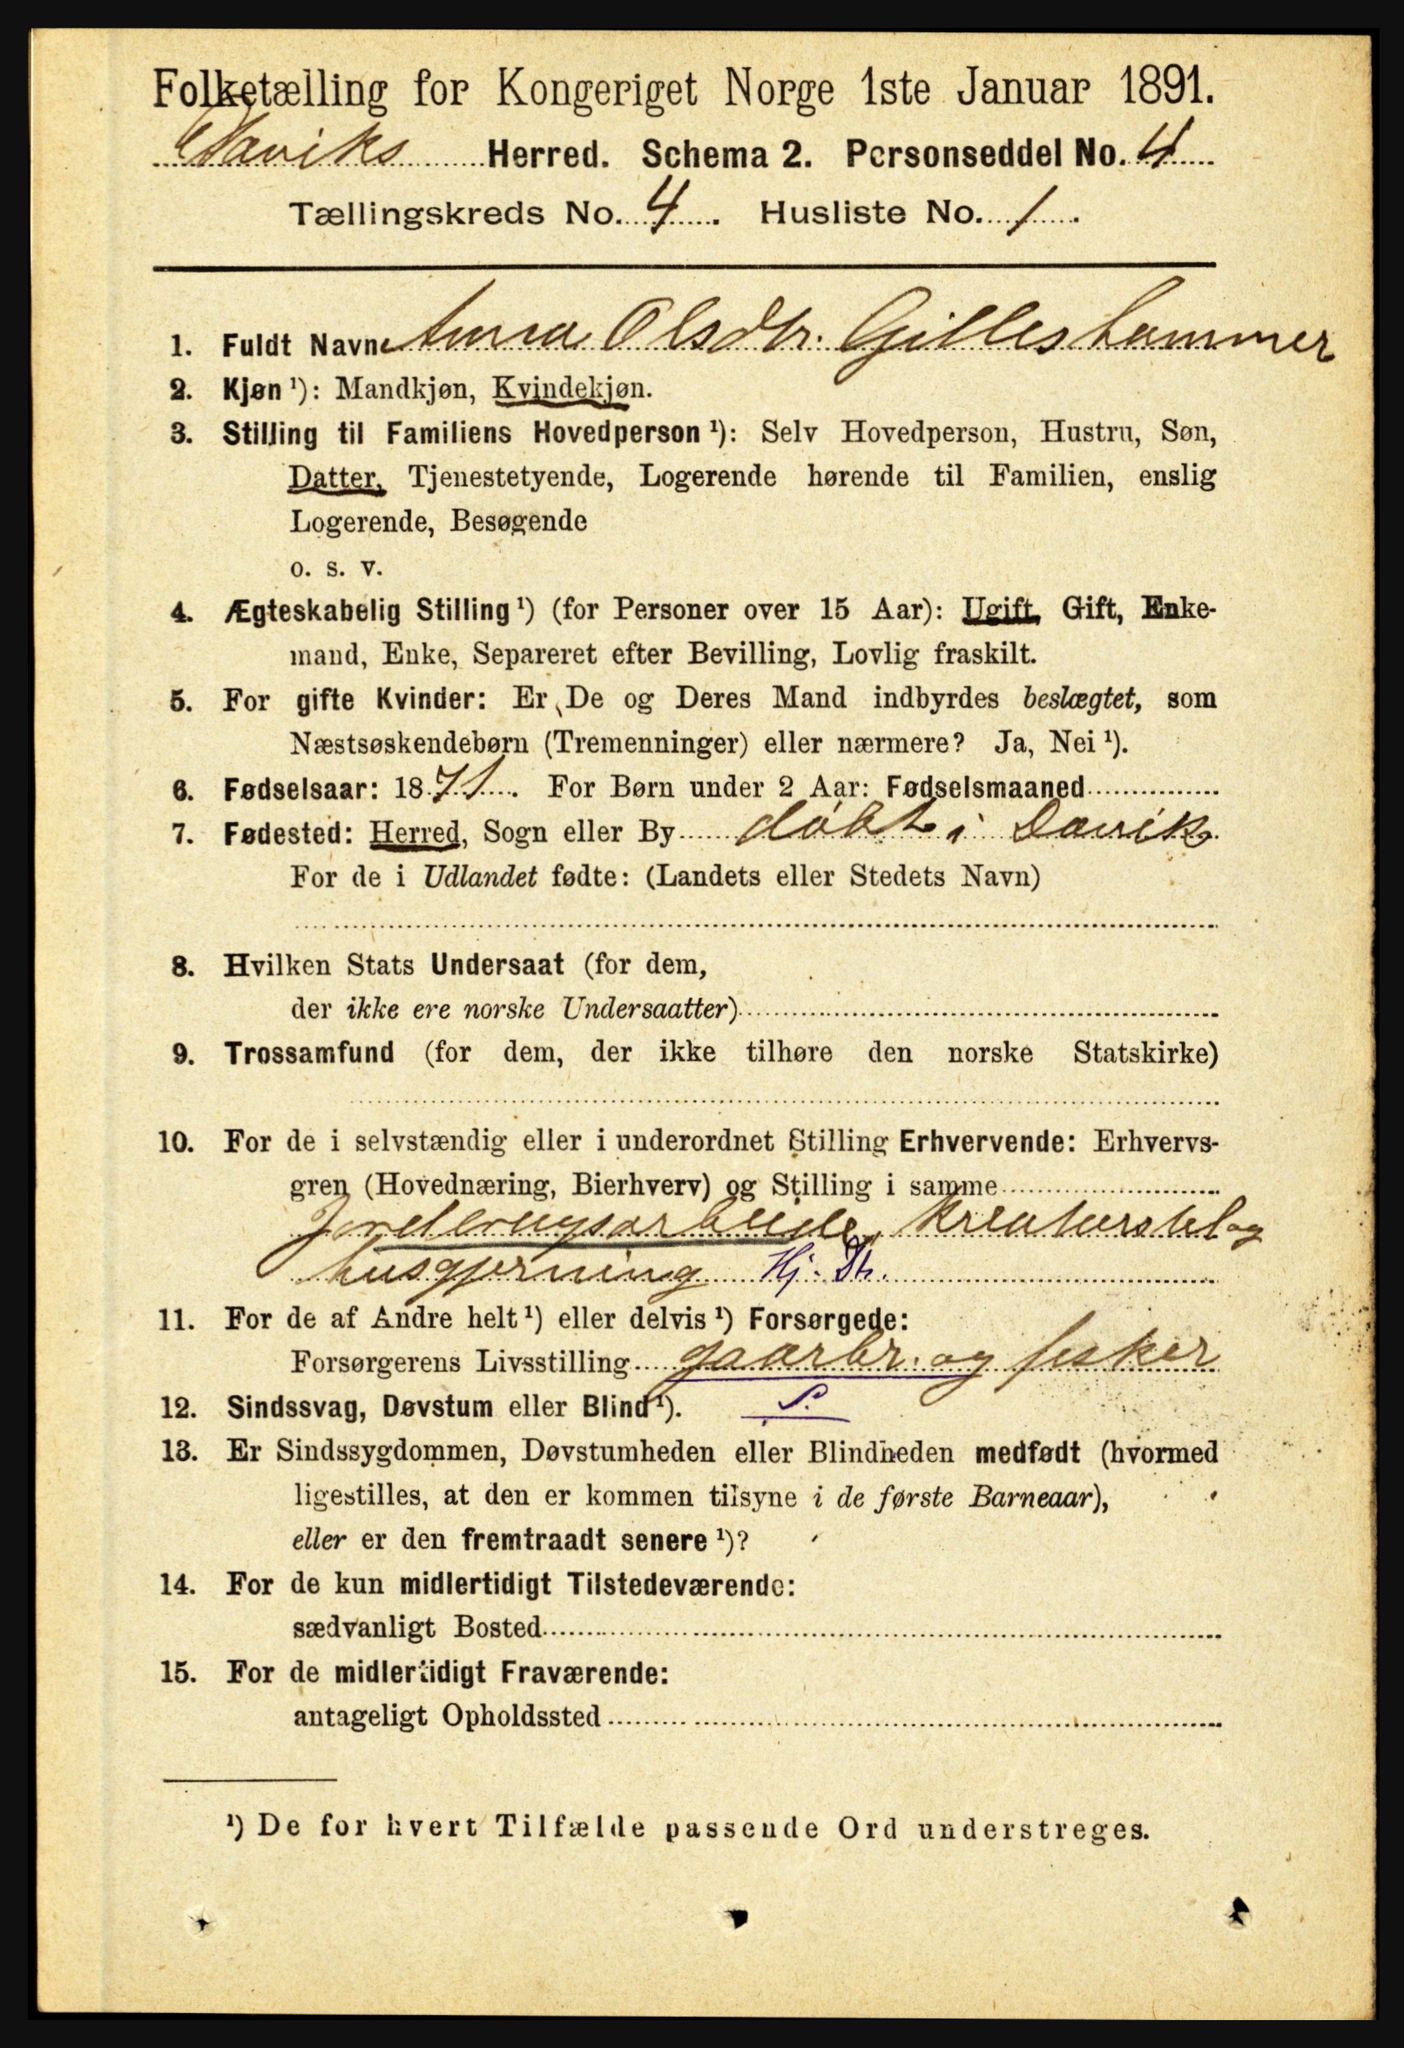 Folketælling for Kongeriget Norge 1ste Januar 1891.
Daviks Herred. Schema 2. Personseddel No. 4
Tællingskreds No. 4. Husliste No. 1.
1. Fuldt Navn Anna Olsdtr. Gilleshammer
2. Kjøn ¹): Mandkjøn, Kvindekjøn.
3. Stilling til Familiens Hovedperson ¹): Selv Hovedperson, Hustru, Søn,
Datter, Tjenestetyende, Logerende hørende til Familien, enslig
Logerende, Besøgende
o. s. v.
4. Ægteskabelig Stilling ¹) (for Personer over 15 Aar): Ugift, Gift, Enke-
mand, Enke, Separeret efter Bevilling, Lovlig fraskilt.
5. For gifte Kvinder: Er De og Deres Mand indbyrdes beslægtet, som
Næstsøskendebørn (Tremenninger) eller nærmere? Ja, Nei ¹).
6. Fødselsaar: 1871. For Børn under 2 Aar: Fødselsmaaned
7. Fødested: Herred, Sogn eller By døbt i Davik
For de i Udlandet fødte: (Landets eller Stedets Navn)
8. Hvilken Stats Undersaat (for dem,
der ikke ere norske Undersaatter)
9. Trossamfund (for dem, der ikke tilhøre den norske Statskirke)
10. For de i selvstændig eller i underordnet Stilling Erhvervende: Erhvervs-
gren (Hovednæring, Bierhverv) og Stilling i samme
Jordbrugsarbeide, kreaturstel og
husgjerning Hj. Dtr.
11. For de af Andre helt ¹) eller delvis ¹) Forsørgede:
Forsørgerens Livsstilling gaarbr. og fisker
12. Sindssvag, Døvstum eller Blind ¹). S.
13. Er Sindssygdommen, Døvstumheden eller Blindheden medfødt (hvormed
ligestilles, at den er kommen tilsyne i de første Barneaar),
eller er den fremtraadt senere ¹)?
14. For de kun midlertidigt Tilstedeværende:
sædvanligt Bosted
15. For de midlertidigt Fraværende:
antageligt Opholdssted
¹) De for hvert Tilfælde passende Ord understreges.